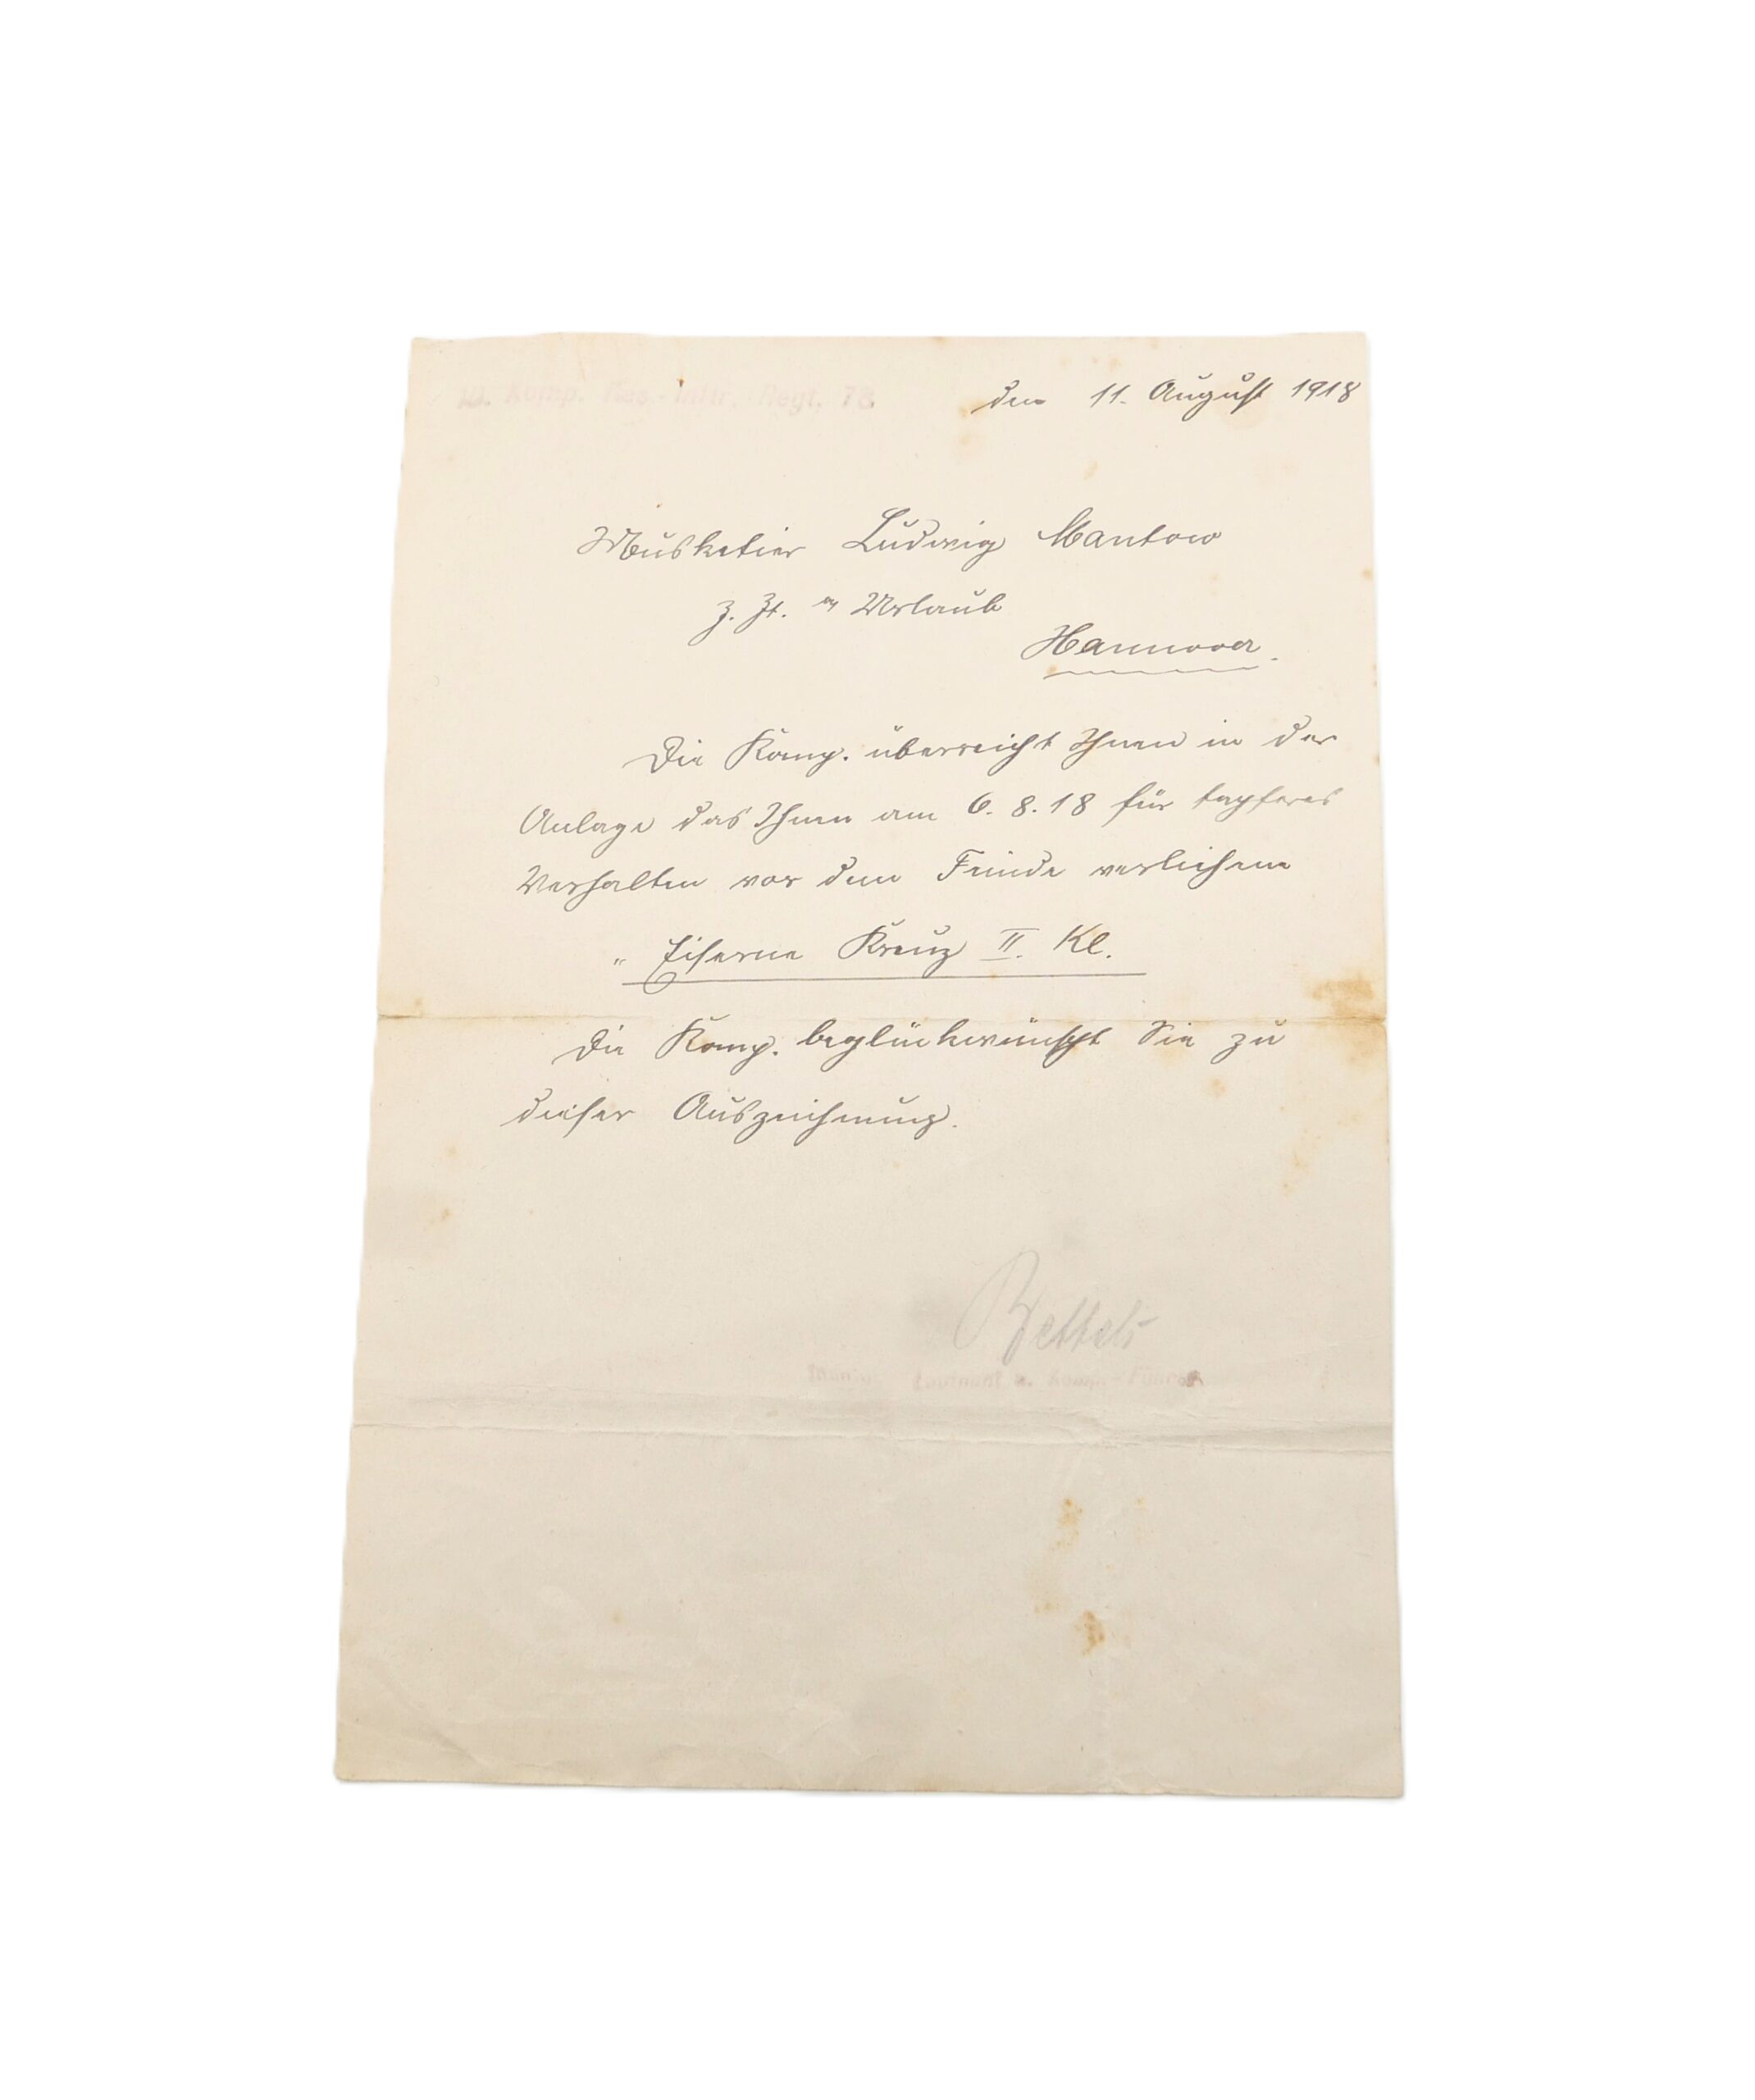 Komp. Res.-Inftr.-Regt. 78
den 11. August 1918
Musketier Ludwig Mantow
z. Zt. Urlaub
Hannover.
Die Komp. überreicht Ihnen in der
Anlage das Ihnen am 6. 8. 18 für tapferes
Verhalten vor dem Feinde verliehene
„ Eiserne Kreuz II. Kl.
Die Komp. beglückwünscht Sie zu
dieser Auszeichnung.
Leutnant u. Komp.-Führer